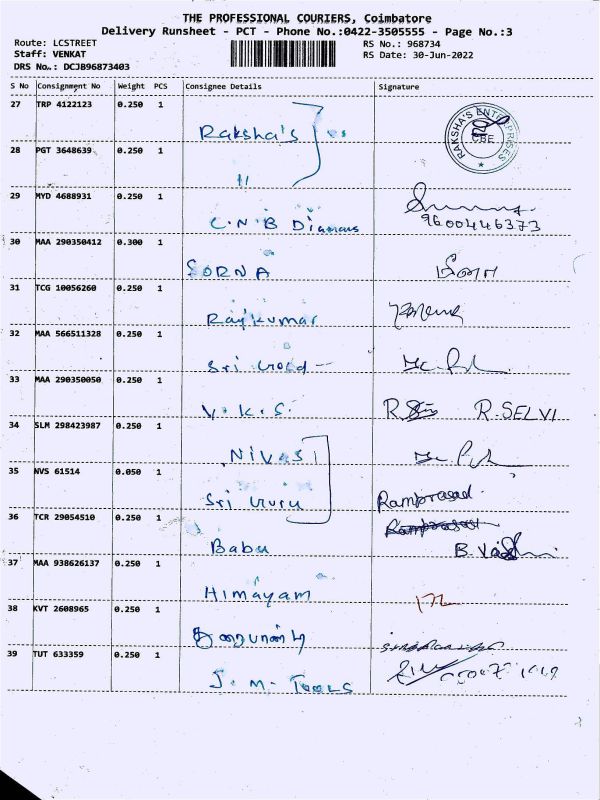 THE PROFESSIONAL COURIERS, Coimbatore
Delivery Runsheet - PCT - Phone No.:0422-3505555 - Page No.:3
Route: LCSTREET
Staff: VENKAT
DRS No.: DCJB96873403
RS No.: 968734
RS Date: 30-Jun-2022
S No Consignment No Weight PCS Consignee Details Signature
27 TRP 4122123 0.250 1
Raksha's
RAKSHA'S ENTERPRISES CBE
28 PGT 3648639 0.250 1
"
29 MYD 4688931 0.250 1
C.N.B
9600446373
30 MAA 290350412 0.300 1
SORNA
31 TCG 10056260 0.250 1
Rajkumar
32 MAA 566511328 0.250 1
Sri
33 MAA 290350050 0.250 1
V.K.S. R. SELVI
34 SLM 298423987 0.250 1
NIVAS
35 NVS 61514 0.050 1
Sri Guru Ramprasad
36 TCR 29054510 0.250 1
Babu
37 MAA 938626137 0.250 1
Himayam
38 KVT 2608965 0.250 1
39 TUT 633359 0.250 1
J.M. TOOLS